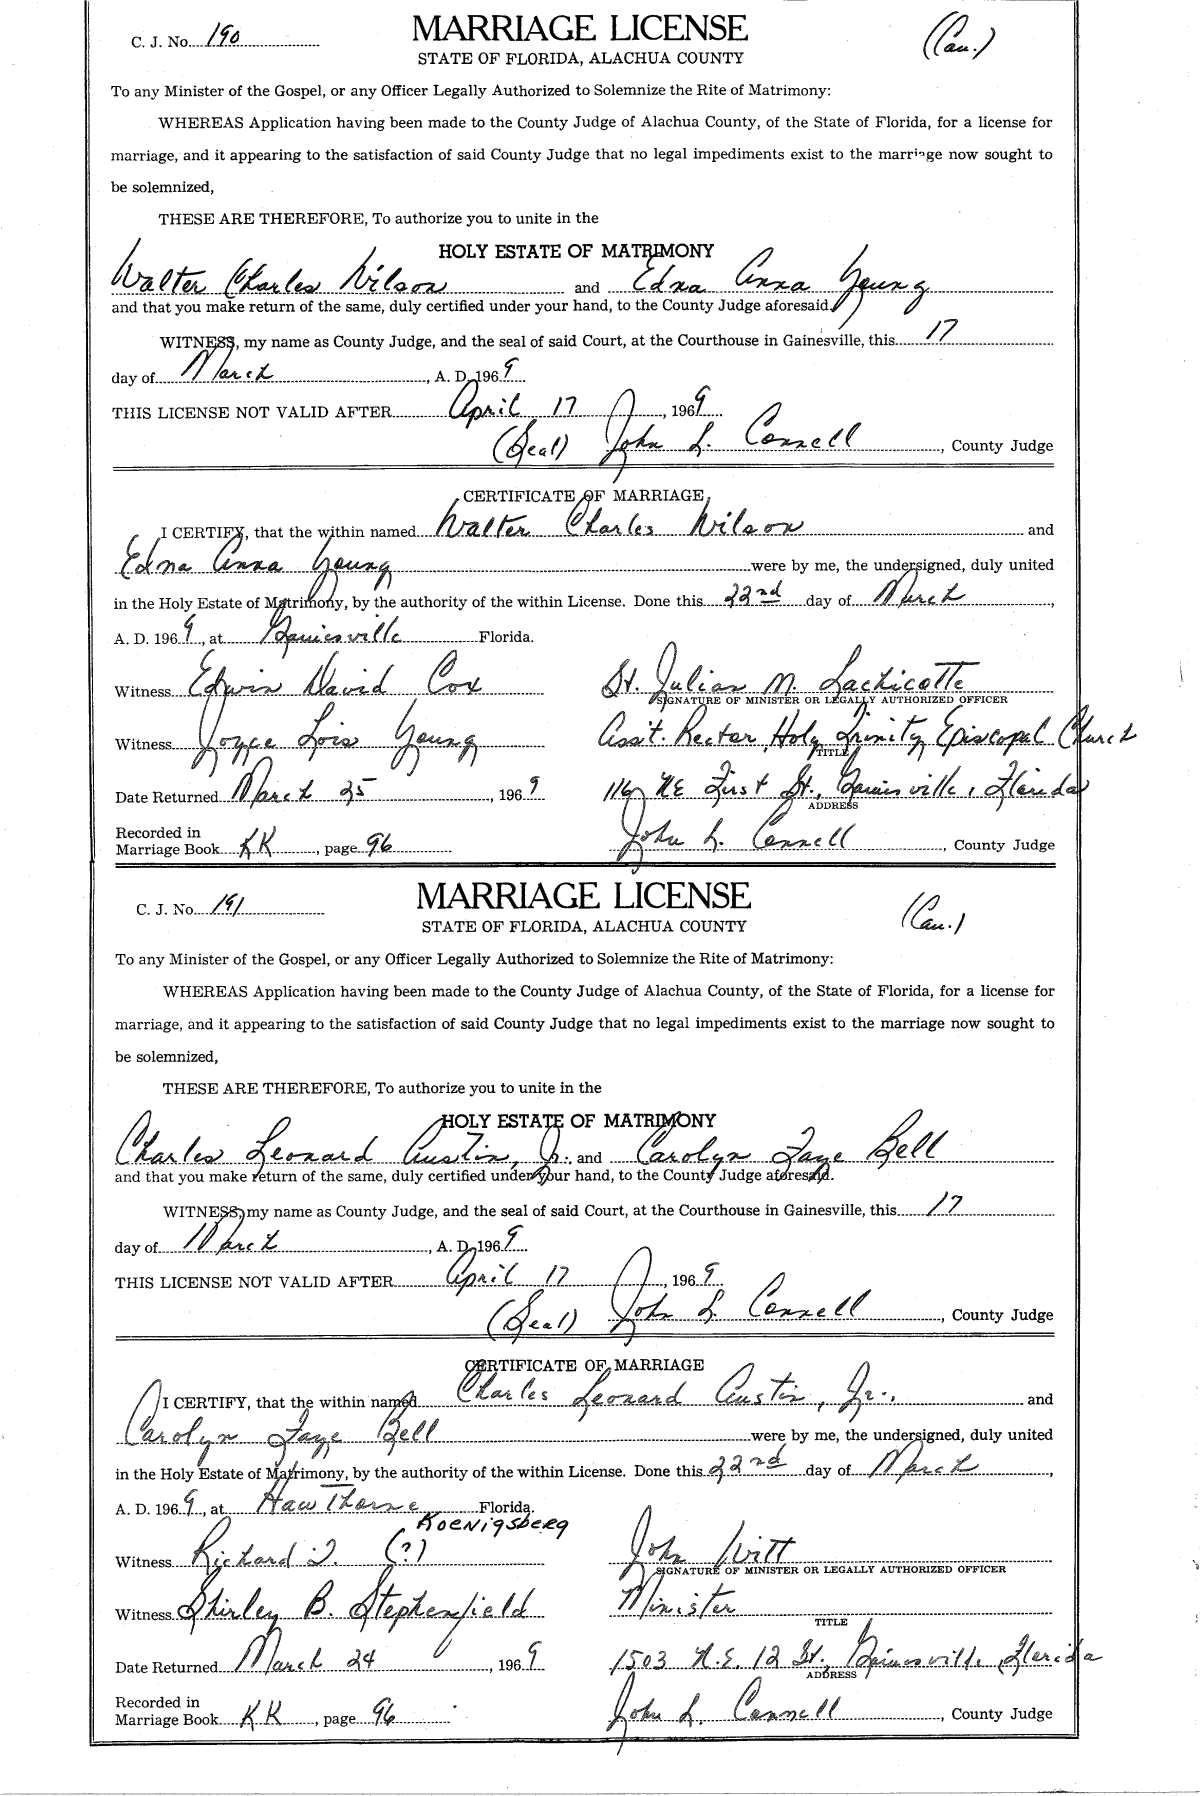 C. J. No. 190
MARRIAGE LICENSE
(Cau.)
STATE OF FLORIDA, ALACHUA COUNTY
To any Minister of the Gospel, or any Officer Legally Authorized to Solemnize the Rite of Matrimony:
WHEREAS Application having been made to the County Judge of Alachua County, of the State of Florida, for a license for
marriage, and it appearing to the satisfaction of said County Judge that no legal impediments exist to the marriage now sought to
be solemnized,
THESE ARE THEREFORE, To authorize you to unite in the
HOLY ESTATE OF MATRIMONY
Walter Charles Wilson and Edna Anna Young
and that you make return of the same, duly certified under your hand, to the County Judge aforesaid.
WITNESS, my name as County Judge, and the seal of said Court, at the Courthouse in Gainesville, this 17
day of March, A. D. 1969
THIS LICENSE NOT VALID AFTER April 17, 1969
(Seal) John L. Connell, County Judge
CERTIFICATE OF MARRIAGE
I CERTIFY, that the within named Walter Charles Wilson and
Edna Anna Young were by me, the undersigned, duly united
in the Holy Estate of Matrimony, by the authority of the within License. Done this 22nd day of March,
A. D. 1969, at Gainesville Florida.
Witness Edwin David Cox St. Julian M. Lachicotte
SIGNATURE OF MINISTER OR LEGALLY AUTHORIZED OFFICER
Witness Joyce Lois Young Ass't. Rector, Holy Trinity Episcopal Church
TITLE
Date Returned March 25, 1969 116 NE First St., Gainesville, Florida
ADDRESS
Recorded in
Marriage Book KK, page 96 John L. Connell, County Judge
C. J. No. 191
MARRIAGE LICENSE
(Cau.)
STATE OF FLORIDA, ALACHUA COUNTY
To any Minister of the Gospel, or any Officer Legally Authorized to Solemnize the Rite of Matrimony:
WHEREAS Application having been made to the County Judge of Alachua County, of the State of Florida, for a license for
marriage, and it appearing to the satisfaction of said County Judge that no legal impediments exist to the marriage now sought to
be solemnized,
THESE ARE THEREFORE, To authorize you to unite in the
HOLY ESTATE OF MATRIMONY
Charles Leonard Austin, Jr. and Carolyn Faye Bell
and that you make return of the same, duly certified under your hand, to the County Judge aforesaid.
WITNESS, my name as County Judge, and the seal of said Court, at the Courthouse in Gainesville, this 17
day of March, A. D. 1969
THIS LICENSE NOT VALID AFTER April 17, 1969
(Seal) John L. Connell, County Judge
CERTIFICATE OF MARRIAGE
I CERTIFY, that the within named Charles Leonard Austin, Jr., and
Carolyn Faye Bell were by me, the undersigned, duly united
in the Holy Estate of Matrimony, by the authority of the within License. Done this 22nd day of March,
A. D. 1969, at Hawthorne Florida.
KOENIGSBERG
Witness Richard J. (?) John Witt
SIGNATURE OF MINISTER OR LEGALLY AUTHORIZED OFFICER
Witness Shirley B. Stephenfield Minister
TITLE
Date Returned March 24, 1969 1503 N.E. 12 St., Gainesville, Florida
ADDRESS
Recorded in
Marriage Book KK, page 96 John L. Connell, County Judge